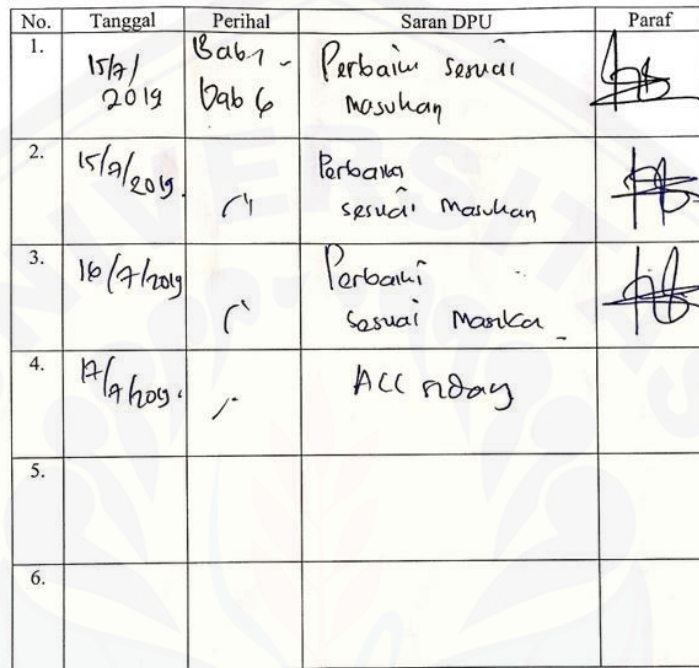 No. Tanggal Perihal Saran DPU Paraf
1. 15/7/ 2019 Bab 1 - bab 6 Perbaiki sesuai
masukan
2. 15/7/2019. " Perbaiki
sesuai masukan
3. 16/7/2019 " Perbaiki
sesuai
4. 17/7/2019. " ACC sidang
5.
6.
UNIVERSITAS